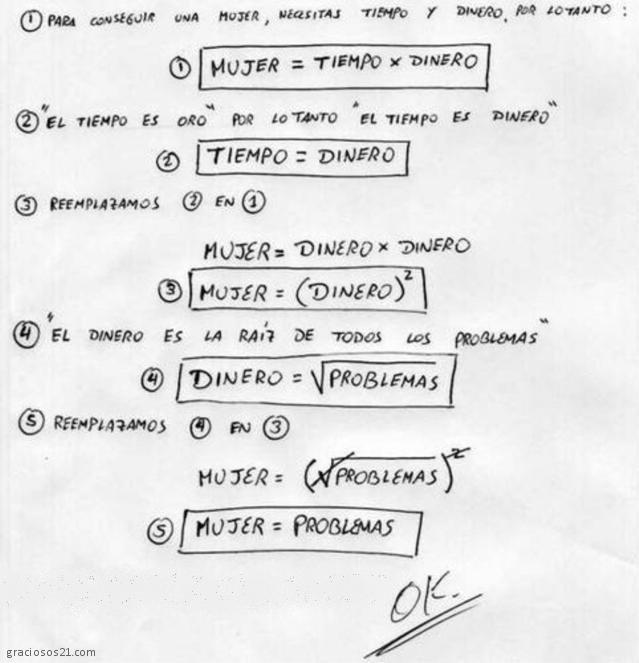 ① PARA CONSEGUIR UNA MUJER, NECESITAS TIEMPO Y DINERO, POR LO TANTO :
① MUJER = TIEMPO × DINERO
② "EL TIEMPO ES ORO" POR LO TANTO "EL TIEMPO ES DINERO"
② TIEMPO = DINERO
③ REEMPLAZAMOS ② EN ①
MUJER = DINERO × DINERO
③ MUJER = (DINERO)²
④ "EL DINERO ES LA RAÍZ DE TODOS LOS PROBLEMAS"
④ DINERO = √PROBLEMAS
⑤ REEMPLAZAMOS ④ EN ③
MUJER = (√PROBLEMAS)²
⑤ MUJER = PROBLEMAS
OK.
graciosos21.com